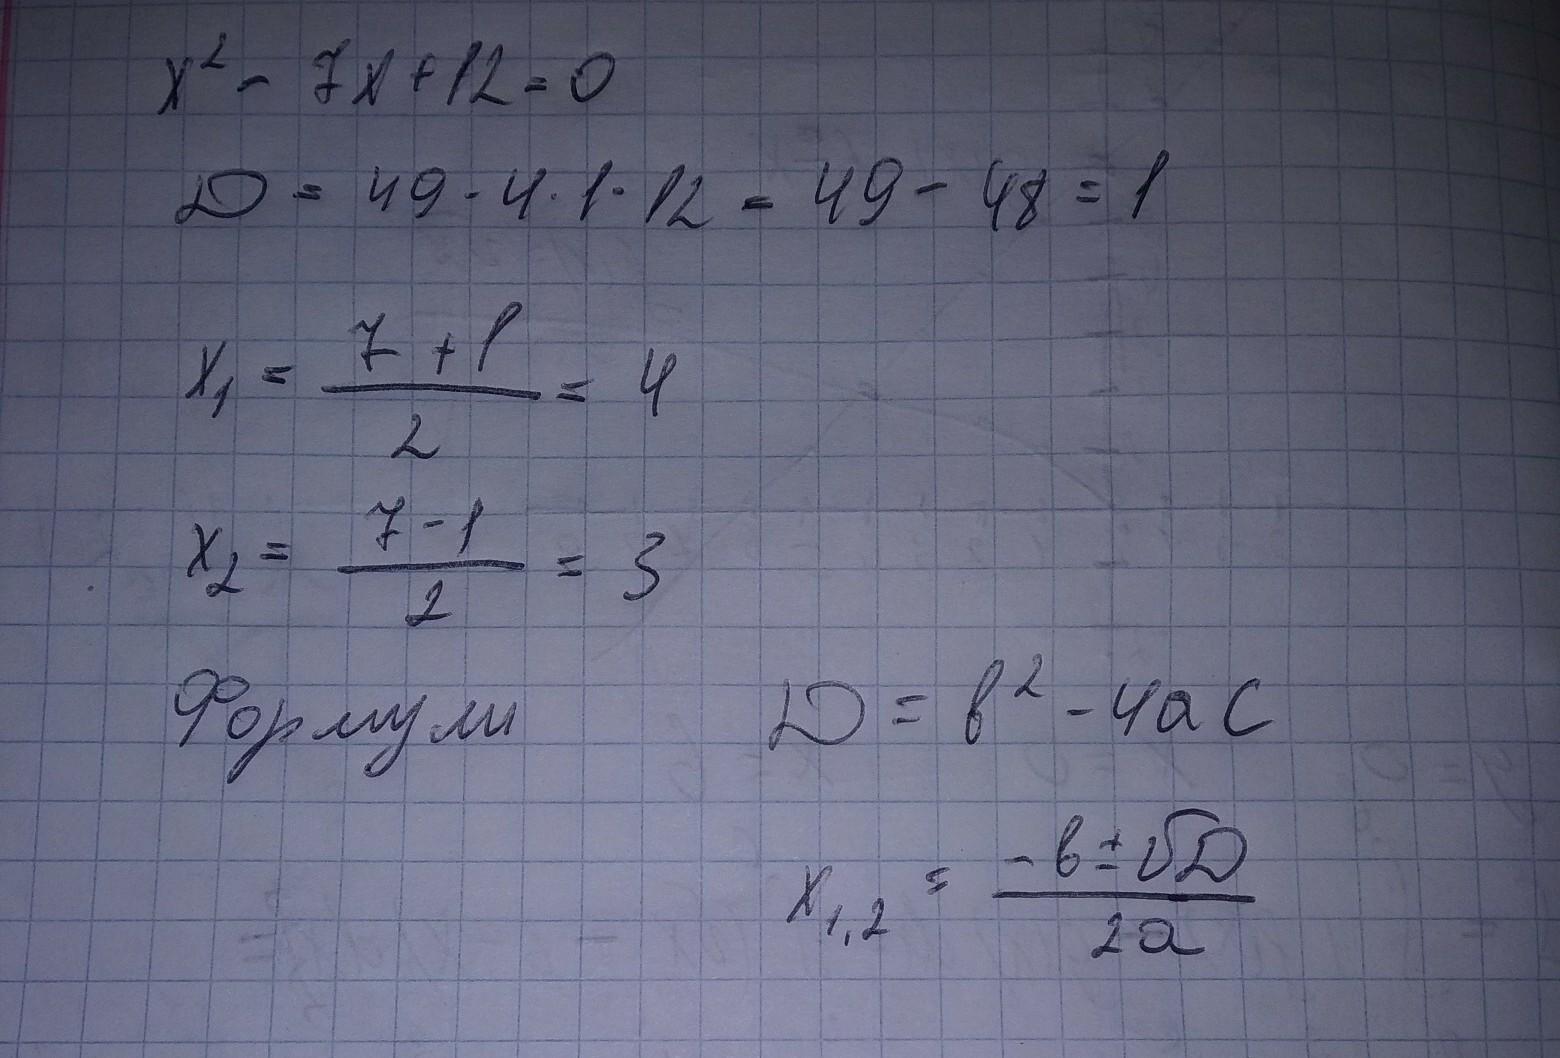 x² - 7x + 12 = 0
D = 49 - 4 · 1 · 12 = 49 - 48 = 1
x₁ = (7 + 1)/2 = 4
x₂ = (7 - 1)/2 = 3
Формули D = b² - 4ac
x₁,₂ = (-b ± √D)/2a